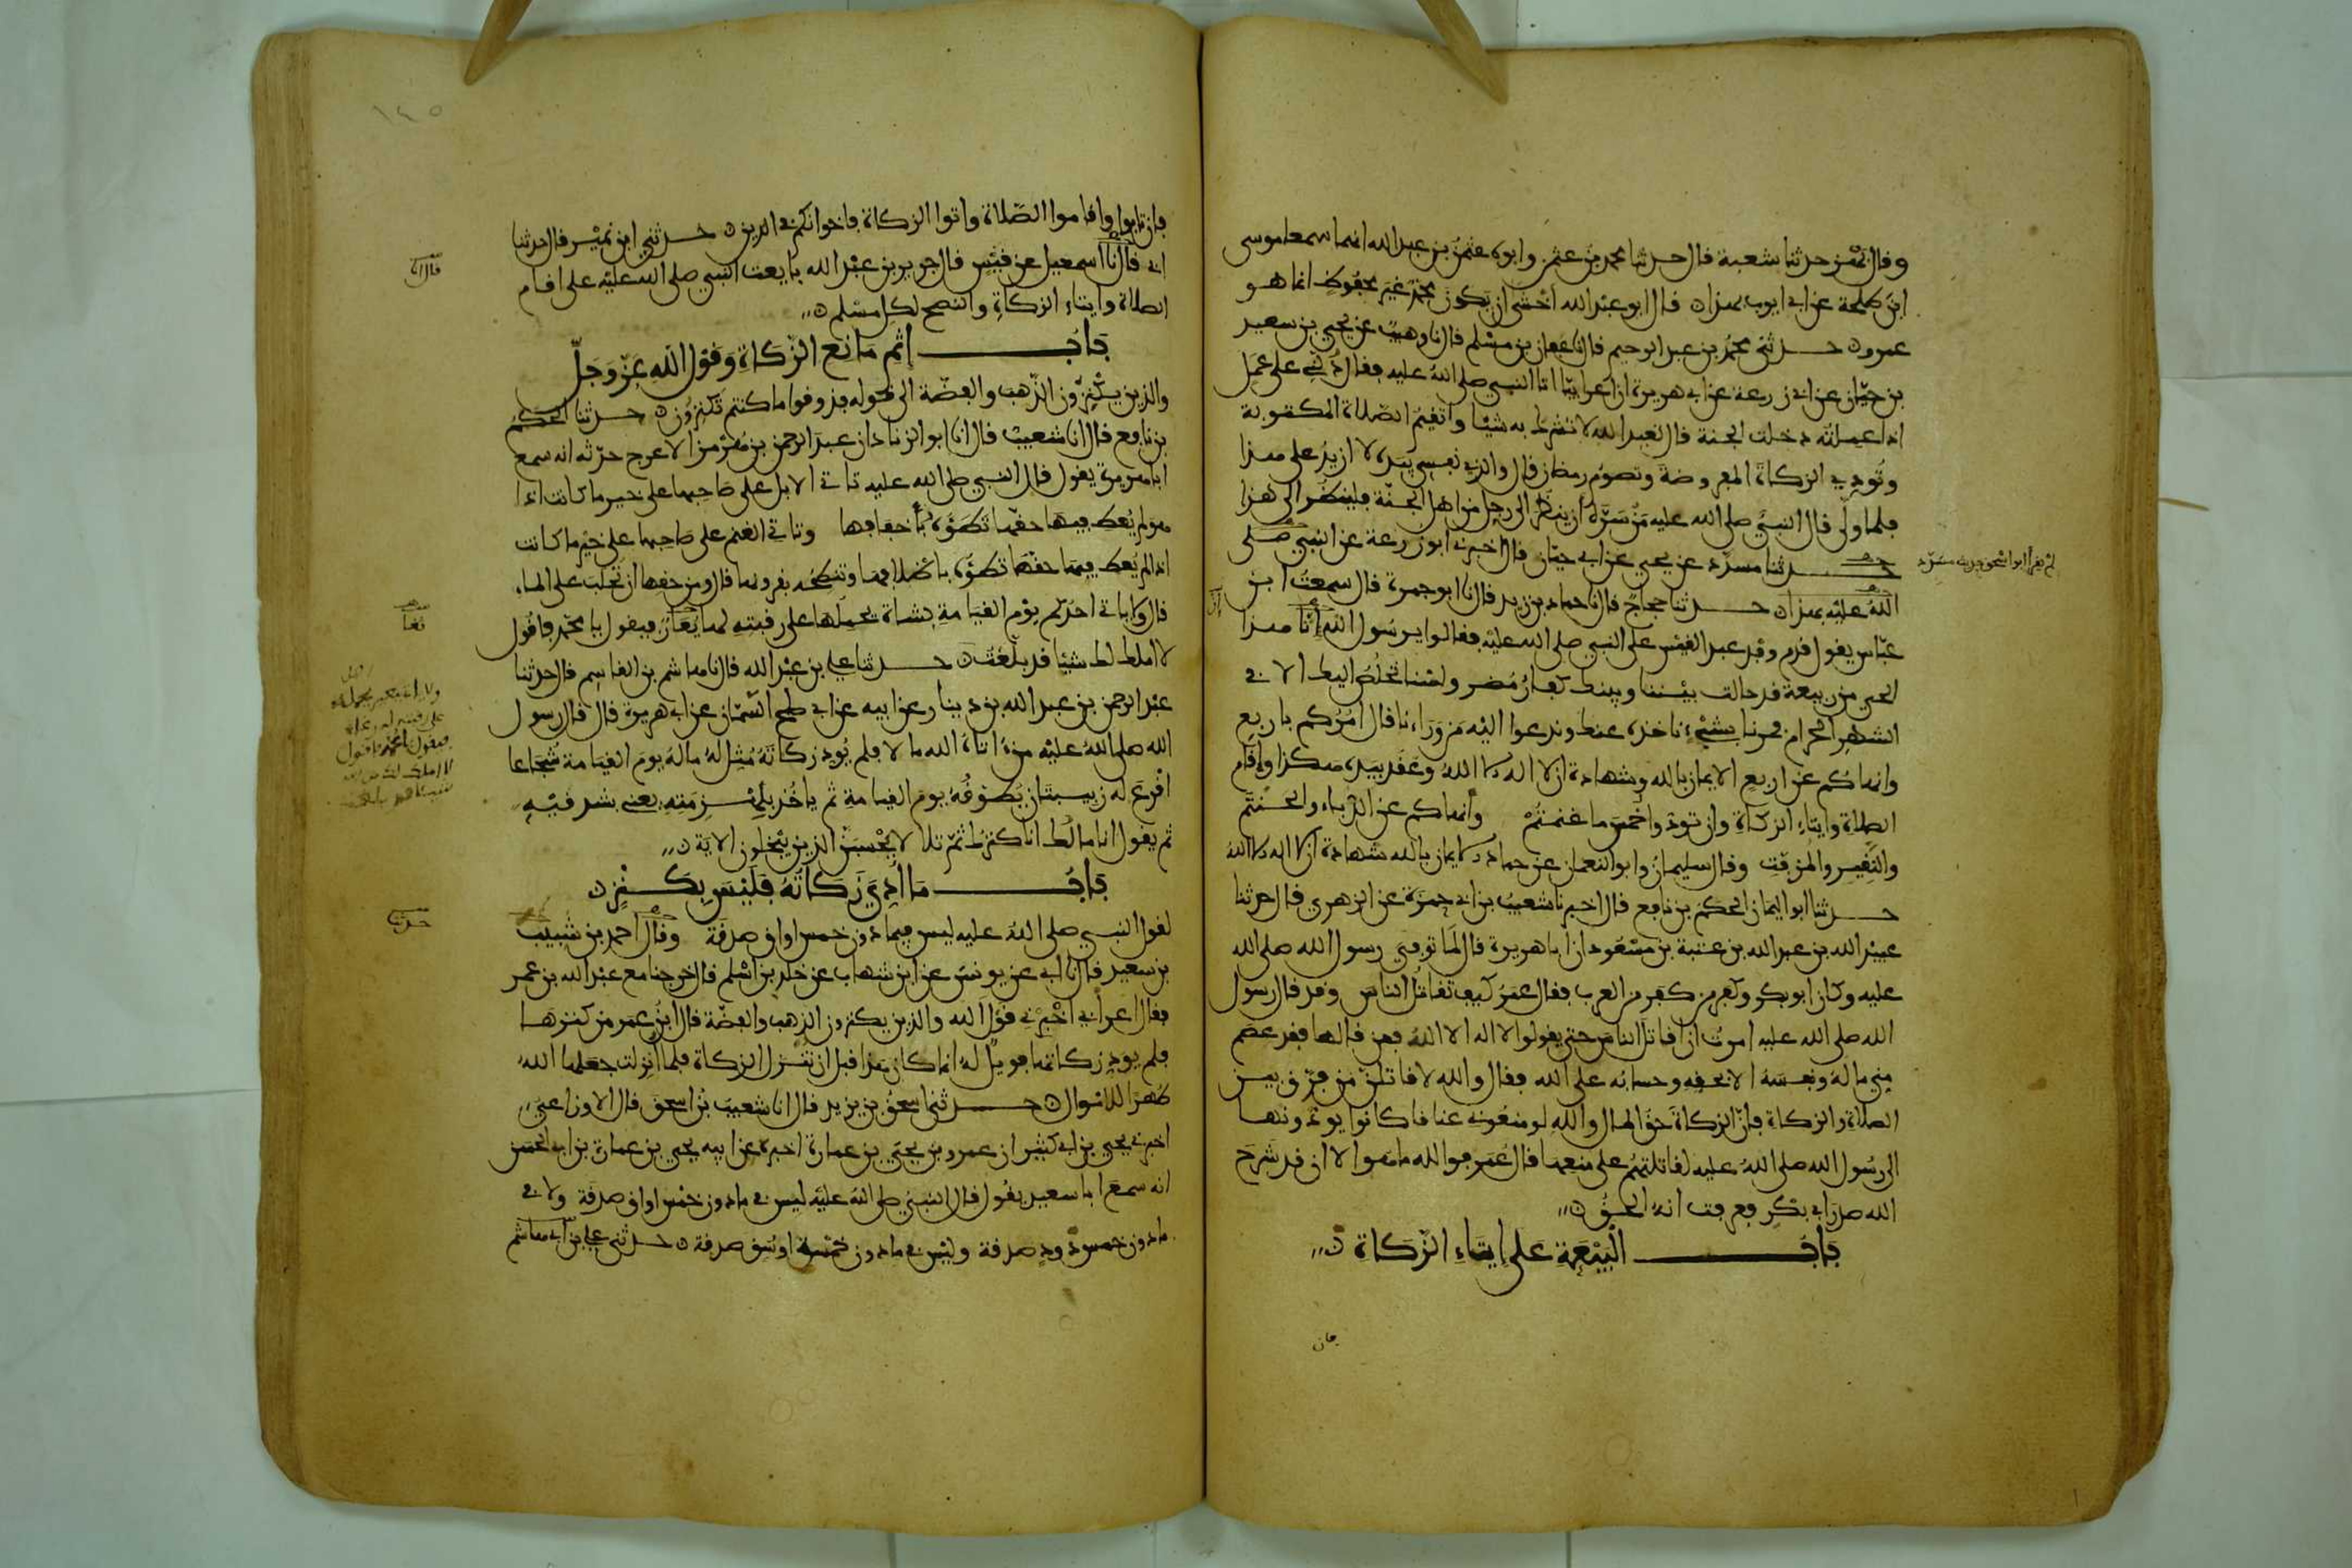 وقال بهز حدثنا شعبة قال حدثنا محمد بن عثمن وابوه عثمن بن عبد الله انهما سمعا موسى
ابن طلحة عن ابي ايوب بهذا ن قال ابو عبد الله اخشى ان يكون محمد غير محفوظ انما هو
عمرو ن حدثني محمد بن عبد الرحيم قال نا عفان بن مسلم قال نا وهيب عن يحيى بن سعيد
بن حيان عن ابي زرعة عن ابي هريرة ان اعرابيا اتا النبي صلى الله عليه فقال دلني على عمل
اذا عملته دخلت الجنة قال تعبد الله لا تشرك به شيئا وتقيم الصلاة المكتوبة
وتودي الزكاة المفروضة وتصوم رمضان قال والذي نفسي بيده لا ازيد على هذا
فلما ولى قال النبي صلى الله عليه من سره ان ينظر الى رجل من اهل الجنة فلينظر الى هذا
حدثنا مسدد عن يحيى عن ابي حيان قال اخبرني ابو زرعة عن النبي صلى
لم يقرا ابو اسحق حديث مسدد
الله عليه بهذا ن حدثنا حجاج قال نا حماد بن زيد قال نا ابو جمرة قال سمعت ابن
عباس يقول قدم وفد عبد القيس على النبي صلى الله عليه فقالوا يرسول الله انا هذا
الحي من ربيعة قد حالت بيننا وبينك كفار مضر ولسنا نخلص اليك الا في
الشهر الحرام فمرنا بشيء ناخذه عنك وندعوا اليه من وراءنا قال امركم باربع
وانهاكم عن اربع الايمان بالله وشهادة ان لا اله الا الله وعقد بيده هكذا واقام
الصلاة وايتاء الزكاة وان تودوا خمس ما غنمتم وانهاكم عن الدباء والحنتم
والنقير والمزفت وقال سليمان وابو النعمان عن حماد الايمان بالله شهادة ان لا اله الا الله
حدثنا ابو اليمان الحكم بن نافع قال اخبرنا شعيب بن ابي حمزة عن الزهري قال حدثنا
عبيد الله بن عبد الله بن عتبة بن مسعود ان ابا هريرة قال لما توفي رسول الله صلى الله
عليه وكان ابو بكر وكفر من كفر من العرب فقال عمر كيف تقاتل الناس وقد قال رسول
الله صلى الله عليه امرت ان اقاتل الناس حتى يقولوا لا اله الا الله فمن قالها فقد عصم
مني ماله ونفسه الا بحقه وحسابه على الله فقال والله لاقاتلن من فرق بين
الصلاة والزكاة فان الزكاة حق المال والله لو منعوني عناقا كانوا يودونها
الى رسول الله صلى الله عليه لقاتلتهم على منعها قال عمر فوالله ما هو الا ان قد شرح
الله صدر ابي بكر فعرفت انه الحق ن
باب البيعة على ايتاء الزكاة ن
فان
١٤٥
فان تابوا واقاموا الصلاة واتوا الزكاة فاخوانكم في الدين ن حدثني ابن نمير قال حدثنا
ابي قال نا اسمعيل عن قيس قال جرير بن عبد الله بايعت النبي صلى الله عليه على اقام
الصلاة وايتاء الزكاة والنصح لكل مسلم ن
باب اثم مانع الزكاة وقول الله عز وجل
والذين يكنزون الذهب والفضة الى قوله فذوقوا ما كنتم تكنزون ن حدثنا الحكم
بن نافع قال انا شعيب قال انا ابو الزناد ان عبد الرحمن بن هرمز الاعرج حدثه انه سمع
ابا هريرة يقول قال النبي صلى الله عليه تاتي الابل على صاحبها على خير ما كانت اذا
هو لم يعط فيها حقها تطؤه باخفافها وتاتي الغنم على صاحبها على خير ما كانت
اذا لم يعط فيها حقها تطؤه باظلافها وتنطحه بقرونها قال ومن حقها ان تحلب على الماء
قال ولا ياتي احدكم يوم القيامة بشاة يحملها على رقبته لها يعار فيقول يا محمد فاقول
لا املك لك شيئا قد بلغت ن حدثنا علي بن عبد الله قال نا هاشم بن القاسم قال حدثنا
ولا ياتي ببعير يحمله
على رقبته له رغاء
فيقول يا محمد فاقول
لا املك لك من الله
شيئا قد بلغت
عبد الرحمن بن عبد الله بن دينار عن ابيه عن ابي صلح السمان عن ابي هريرة قال قال رسول
الله صلى الله عليه من اتاه الله مالا فلم يود زكاته مثل له ماله يوم القيامة شجاعا
اقرع له زبيبتان يطوقه يوم القيامة ثم ياخذ بلهزمته يعني بشدقيه
ثم يقول انا مالك انا كنزك ثم تلا لا يحسبن الذين يبخلون الاية ن
باب ما ادي زكاته فليس بكنز ن
لقول النبي صلى الله عليه ليس فيما دون خمس اواق صدقة وقال احمد بن شبيب
بن سعيد قال نا ابي عن يونس عن ابن شهاب عن خلد بن اسلم قال خرجنا مع عبد الله بن عمر
فقال اعرابي اخبرني قول الله والذين يكنزون الذهب والفضة قال ابن عمر من كنزها
فلم يود زكاتها فويل له انما كان هذا قبل ان تنزل الزكاة فلما انزلت جعلها الله
طهرا للاموال ن حدثنا اسحق بن يزيد قال انا شعيب بن اسحق قال الاوزاعي
اخبرني يحيى بن ابي كثير ان عمرو بن يحيى بن عمارة اخبره عن ابيه يحيى بن عمارة بن ابي الحسن
انه سمع ابا سعيد يقول قال النبي صلى الله عليه ليس في ما دون خمس اواق صدقة ولا في
ما دون خمس ذود صدقة وليس في ما دون خمسة اوسق صدقة ن حدثني علي بن ابي هاشم